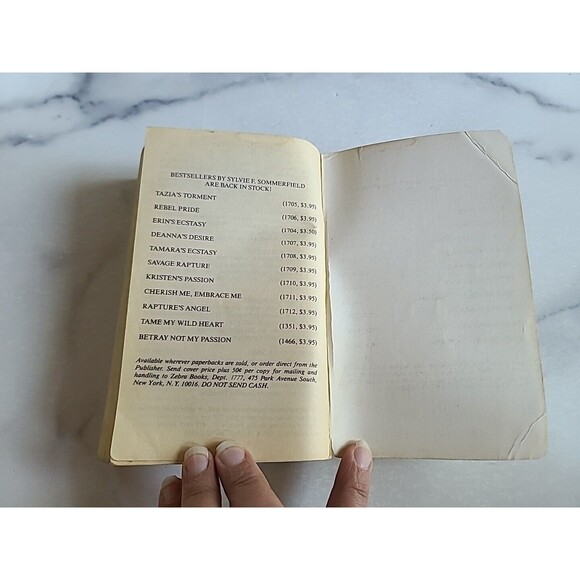 BESTSELLERS BY SYLVIE F. SOMMERFIELD
ARE BACK IN STOCK!
TAZIA'S TORMENT (1705, $3.95)
REBEL PRIDE (1706, $3.95)
ERIN'S ECSTASY (1704, $3.50)
DEANNA'S DESIRE (1707, $3.95)
TAMARA'S ECSTASY (1708, $3.95)
SAVAGE RAPTURE (1709, $3.95)
KRISTEN'S PASSION (1710, $3.95)
CHERISH ME, EMBRACE ME (1711, $3.95)
RAPTURE'S ANGEL (1712, $3.95)
TAME MY WILD HEART (1351, $3.95)
BETRAY NOT MY PASSION (1466, $3.95)
Available wherever paperbacks are sold, or order direct from the
Publisher. Send cover price plus 50¢ per copy for mailing and
handling to Zebra Books, Dept. 1777, 475 Park Avenue South,
New York, N.Y. 10016. DO NOT SEND CASH.